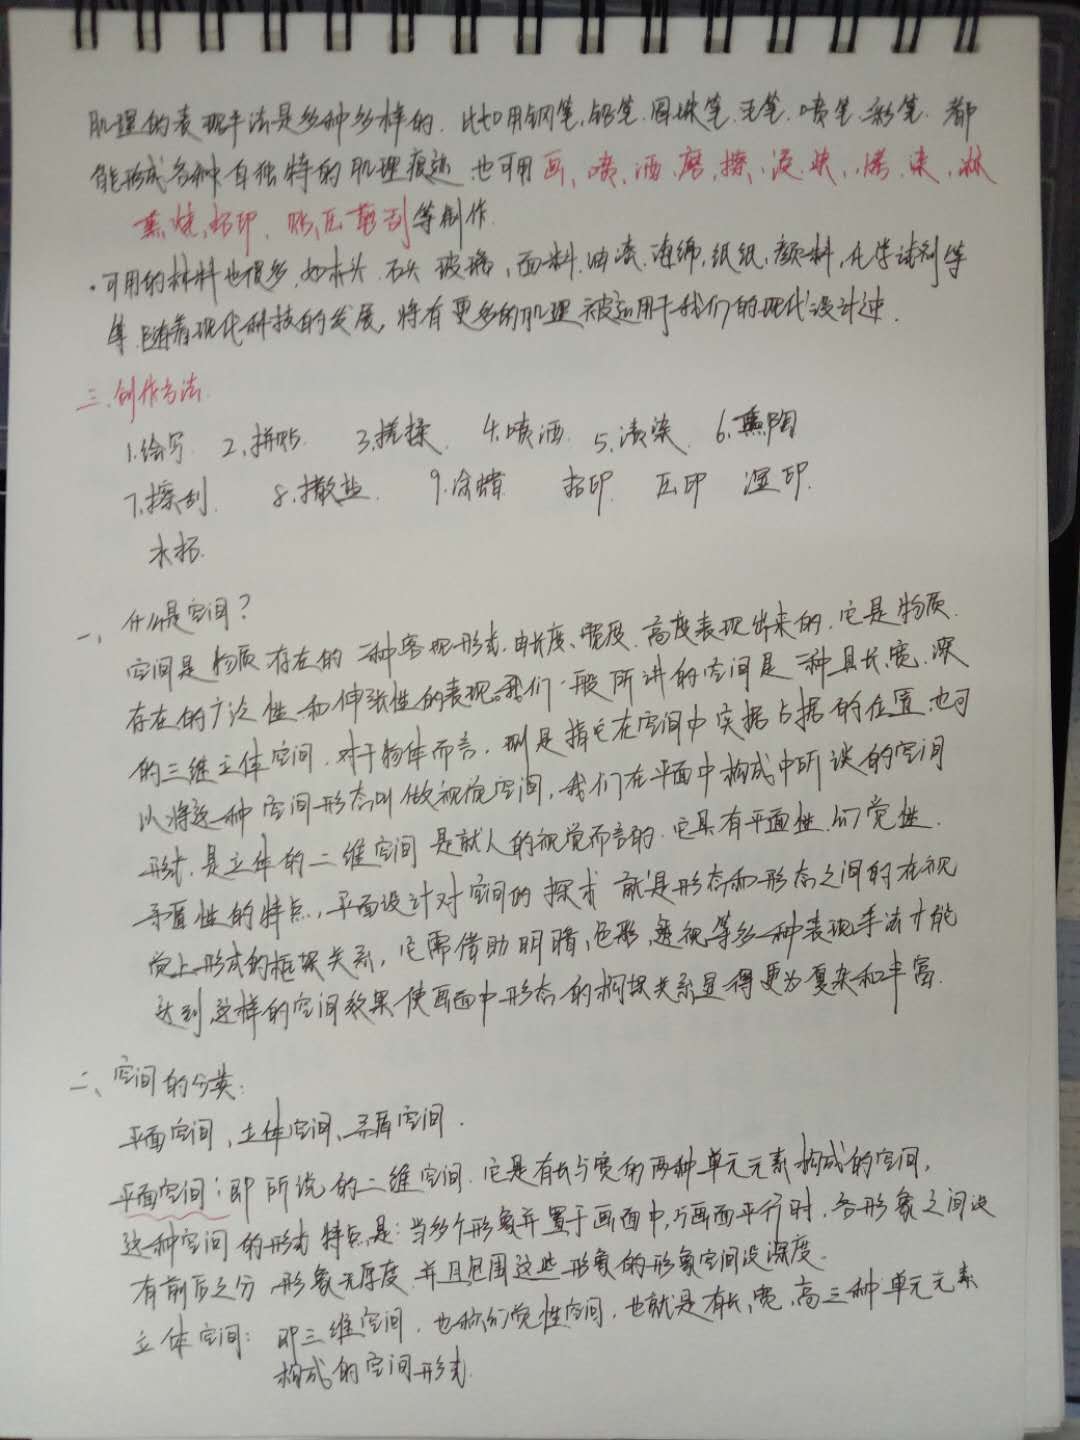 肌理的表现手法是多种多样的.比如用钢笔,铅笔.圆珠笔.毛笔.喷笔.彩笔.都
能形成各种自独特的肌理痕迹.也可用画、喷、洒、磨、擦、浸、炔、烤、染、淋
熏、烧、拓印、贴、压、剪刮等制作.
·可用的材料也很多,如木头.石头.玻璃、面料.油漆.海绵,纸纸,颜料,化学试剂等
等.随着现代科技的发展,将有更多的肌理被运用于我们的现代设计过.
三、创作方法
1.绘写 2.拼贴. 3.搓揉. 4.喷洒. 5.渍染. 6.熏陶
7.擦刮. 8.撒盐. 9.涂蜡 拓印. 压印 湿印.
水拓.
一、什么是空间?
空间是物质存在的一种客观形式.由长度、宽度、高度表现出来的.它是物质.
存在的广泛性和伸张性的表现。我们一般所讲的空间是一种具长、宽、深
的三维立体空间.对于物体而言,则是指它在空间中实据占据的位置.也可
以将这种空间形态叫做视觉空间,我们在平面中构成中所谈的空间
形式,是立体的二维空间是就人的视觉而言的.它具有平面性.幻觉性.
矛盾性的特点,平面设计对空间的探求就是形态和形态之间的在视
觉上形成的框架关系,它需借助明暗、色形,透视等多种表现手法才能
达到这样的空间效果使画面中形态的构架关系显得更为复杂和丰富.
二、空间的分类:
平面空间、立体空间、矛盾空间.
平面空间:即所说的二维空间.它是有长与宽的两种单元元素构成的空间,
这种空间的形式特点是:当多个形象并置于画面中,与画面平行时.各形象之间没
有前后之分.形象无厚度.并且包围这些形象的形象空间没深度.
立体空间:即三维空间.也称幻觉性空间.也就是有长、宽、高三种单元元素
构成的空间形式.